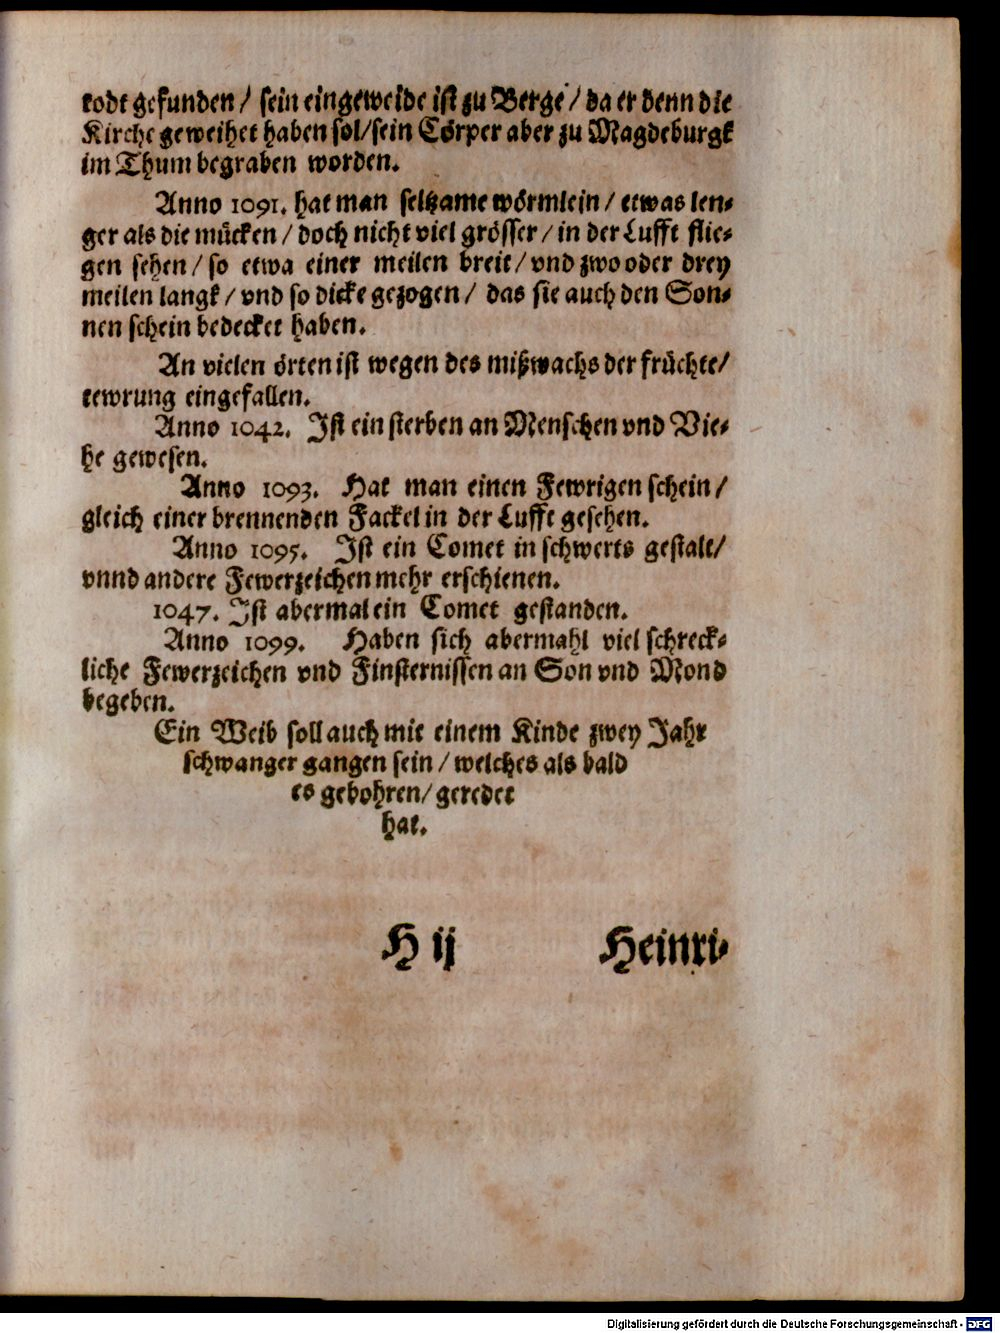 todt gefunden / sein eingeweide ist zu Berge / da er denn die
Kirche geweihet haben sol / sein Cörper aber zu Magdeburgk
im Thum begraben worden.
Anno 1091. hat man seltzame wörmlein / etwas len-
ger als die mücken / doch nicht viel grösser / in der Lufft flie-
gen sehen / so etwa einer meilen breit / vnd zwo oder drey
meilen langk / vnd so dicke gezogen / das sie auch den Son-
nen schein bedecket haben.
An vielen örten ist wegen des mißwachs der früchte /
tewrung eingefallen.
Anno 1042. Ist ein sterben an Menschen vnd Vie-
he gewesen.
Anno 1093. Hat man einen Fewrigen schein /
gleich einer brennenden Fackel in der Lufft gesehen.
Anno 1095. Ist ein Comet in schwerts gestalt /
vnnd andere Fewerzeichen mehr erschienen.
1047. Ist abermal ein Comet gestanden.
Anno 1099. Haben sich abermahl viel schreck-
liche Fewerzeichen vnd Finsternissen an Son vnd Mond
begeben.
Ein Weib soll auch mit einem Kinde zwey Jahr
schwanger gangen sein / welches als bald
es gebohren / geredet
hat.
H ij Heinri-
Digitalisierung gefördert durch die Deutsche Forschungsgemeinschaft - DFG